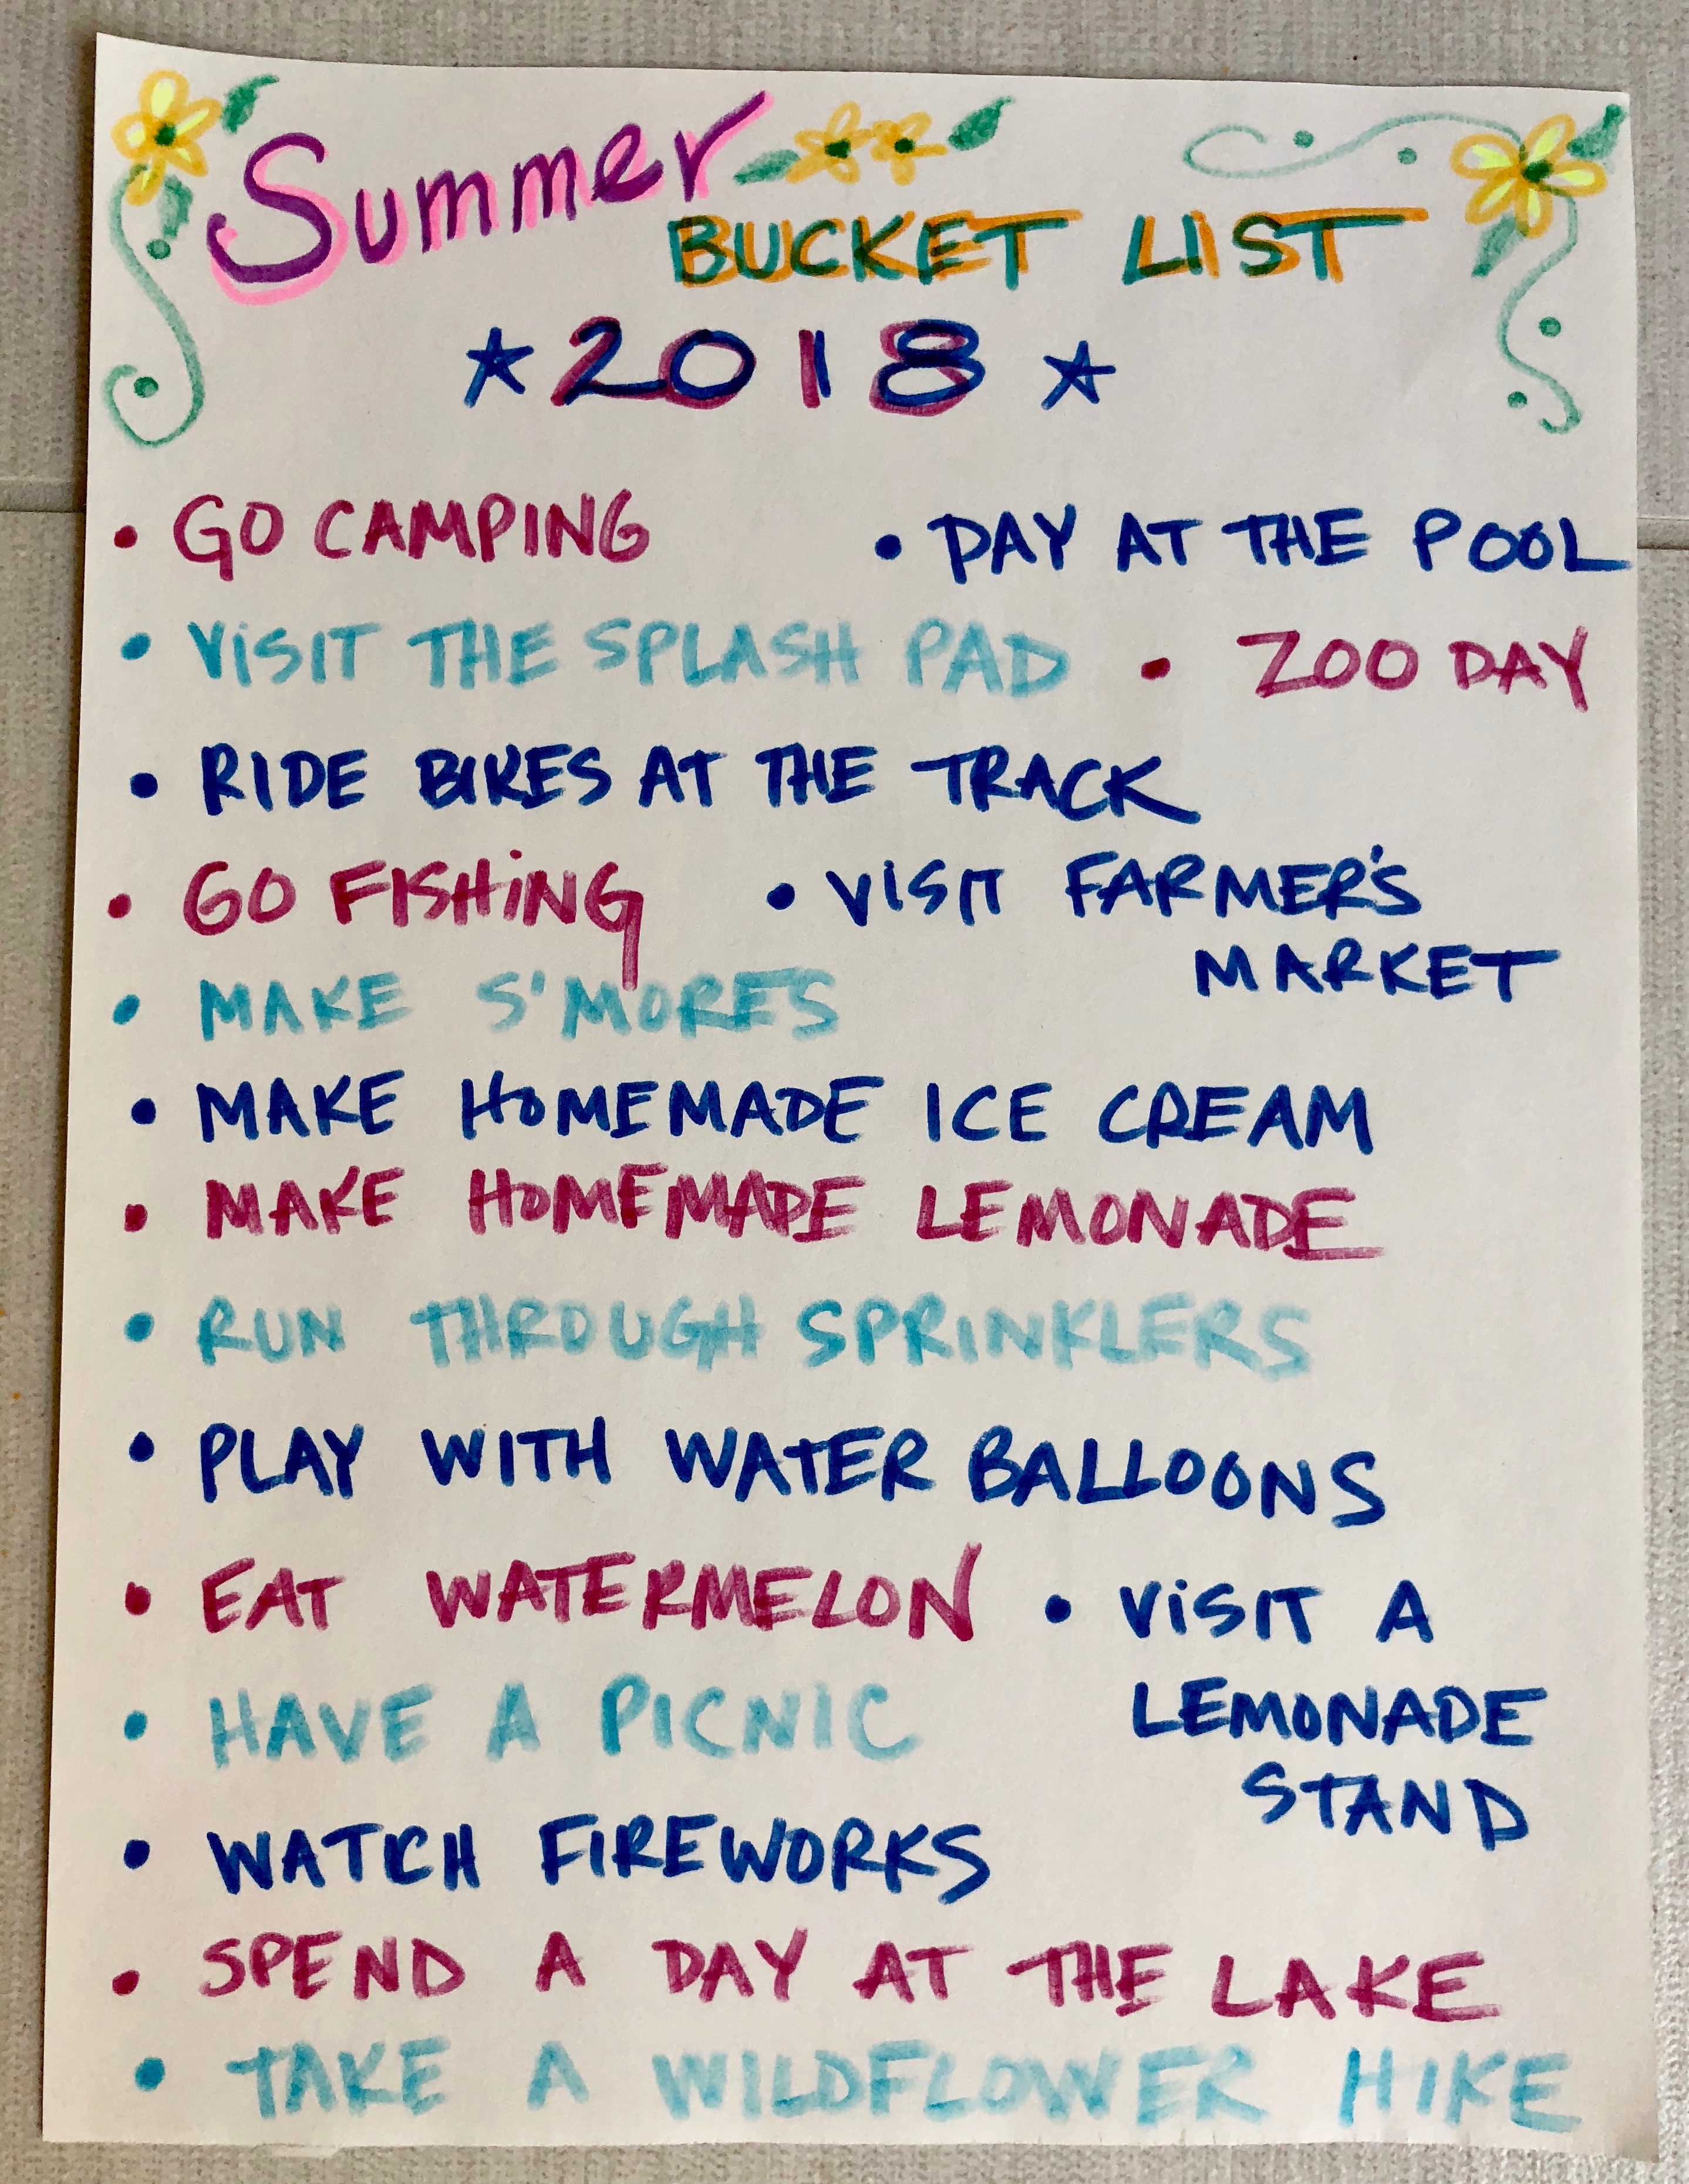 Summer
BUCKET LIST
★ 2018 ★
• GO CAMPING • DAY AT THE POOL
• VISIT THE SPLASH PAD • ZOO DAY
• RIDE BIKES AT THE TRACK
• GO FISHING • VISIT FARMER'S
MARKET
• MAKE S'MORES
• MAKE HOMEMADE ICE CREAM
• MAKE HOMEMADE LEMONADE
• RUN THROUGH SPRINKLERS
• PLAY WITH WATER BALLOONS
• EAT WATERMELON • VISIT A
LEMONADE
STAND
• HAVE A PICNIC
• WATCH FIREWORKS
• SPEND A DAY AT THE LAKE
• TAKE A WILDFLOWER HIKE